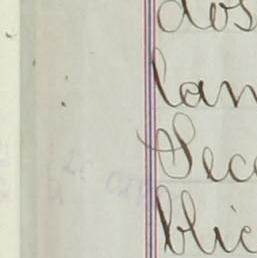 dos
lan
Sec
blic